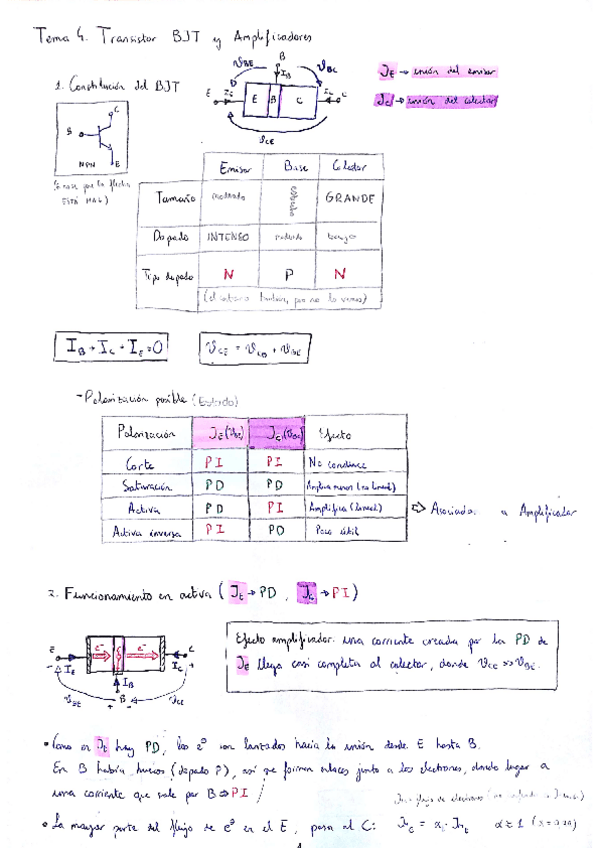 Tema 4. Transistor BJT y Amplificadores
1. Constitución del BJT
B
VBE
IB
VBC
E
E
B
C
C
VCE
JE → unión del emisor
JC → unión del colector
C
B
NPN
E
ESTÁ MAL)
Emisor Base Colector
Tamaño moderado estrecho GRANDE
Dopado INTENSO moderado
Tipo dopado N P N
(el contrario también, pero no lo vemos)
IB + IC + IE = 0
VCE = VCB + VBE
- Polarización posible (Estado)
Polarización JE (VBE) JC (VBC) Efecto
Corte PI PI No conduce
Saturación PD PD Amplifica menos (no lineal)
Activa PD PI Amplifica (lineal) ⇒ Asociada a Amplificador
Activa inversa PI PD Poco útil
2. Funcionamiento en activa (JE → PD, JC → PI)
E
e-
e-
C
IE
IC
IB
VBE
B
VCE
Efecto amplificador: una corriente creada por la PD de
JE llega casi completa al colector, donde VCE >> VBE.
• Como en JE hay PD, los e- son lanzados hacia la unión desde E hasta B.
En B habría huecos (dopado P), así que forman enlaces junto a los electrones, dando lugar a
una corriente que sale por B ⇒ PI
• La mayor parte del flujo de e- en el E, pasa al C: